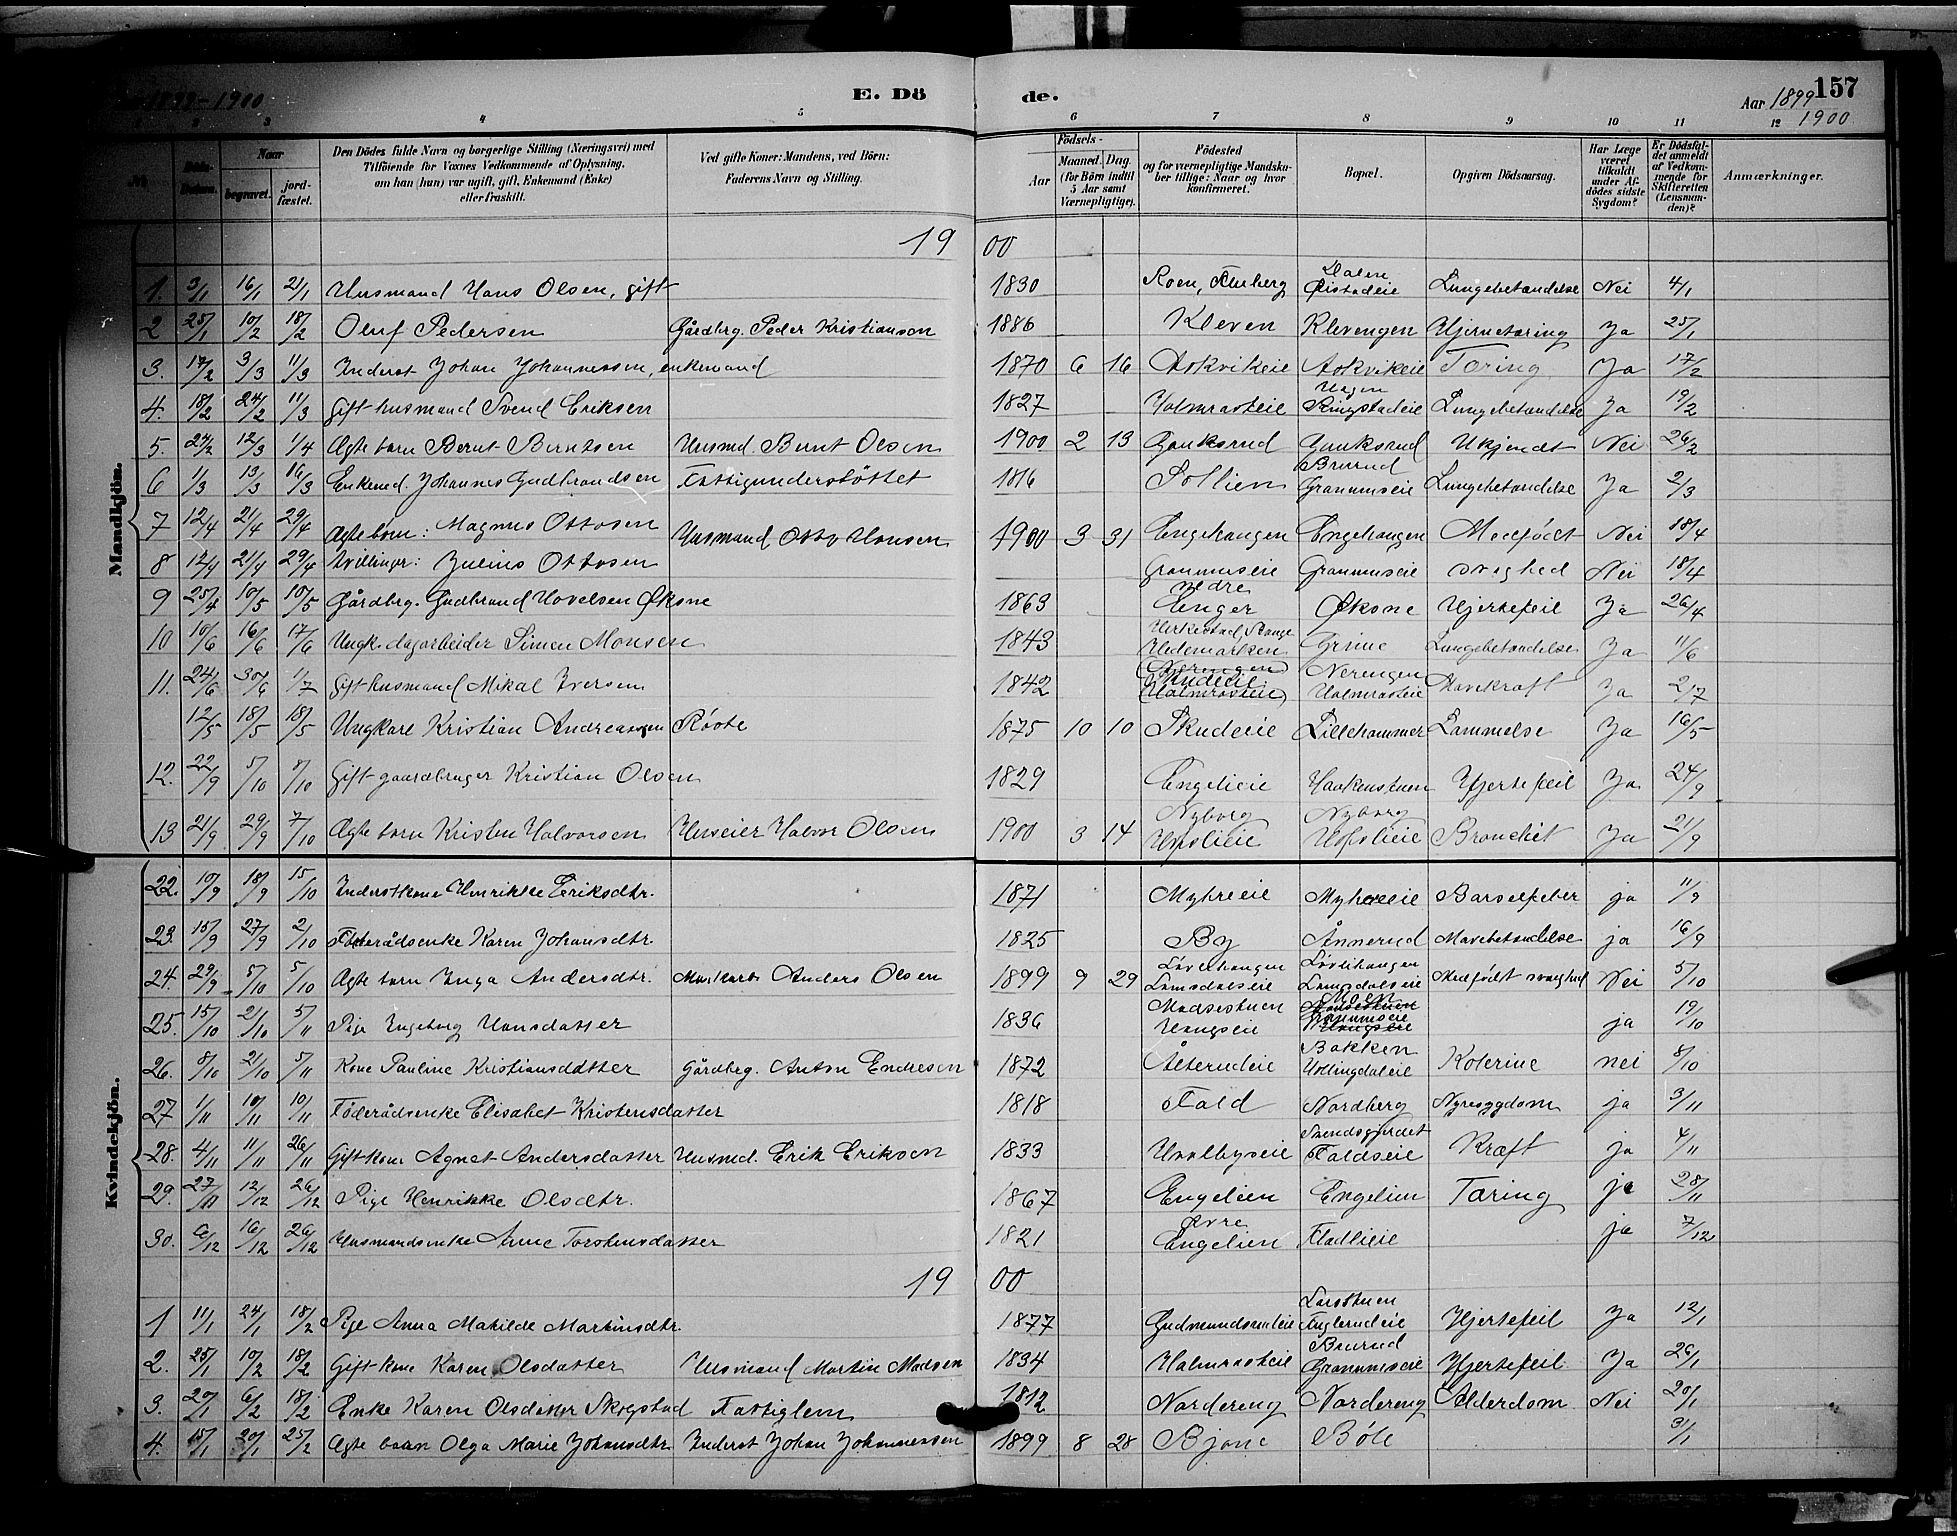 1899-1900 E. Dö de. Aar 1899 157
1900
1 2 3 4 5 6 7 8 9 10 11 12
№ Döds-Datum. Naar begravet. jord-fæstet. Den Dödes fulde Navn og borgerlige Stilling (Næringsvei) med Tilföiende for Voxnes Vedkommende af Oplysning, om han (hun) var ugift, gift, Enkemand (Enke) eller fraskilt. Ved gifte Koner: Mandens, ved Börn: Faderens Navn og Stilling. Födsels- Aar Maaned. Dag. (for Börn indtil 5 Aar samt Værnepligtige). Födested og for værnepligtige Mandskaber tillige: Naar og hvor konfirmeret. Bopæl. Opgiven Dödsaarsag. Har Læge været tilkaldt under Afdödes sidste Sygdom? Er Dödsfaldet anmeldt af Vedkommende for Skifteretten (Lensmanden)? Anmærkninger.
Mandkjön.
19 00
1. 3/1 16/1 21/1 Husmand Hans Olsen, gift 1830 Roen, Lungebetændelse Nei 4/1
2 25/1 10/2 18/2 Oluf Pedersen Gårdbrg. Peder Kristiansen 1886 Kleven Klevengen Hjernetæring Ja 25/1
3. 17/2 3/3 11/3 Inderst Johan Johannessen, enkemand 1870 6 16 Aokvikeie Aokvikeie Tæring Ja 17/2
4. 18/2 24/2 11/3 Gift husmand Svend Eriksen 1827 Halmrasteie Hagen Ringstadeie Lungebetændelse Ja 19/2
5. 24/2 12/3 1/4 Ægte barn Bernt Berntsen Husmd. Bernt Olsen 1900 2 13 Gauksrud Gauksrud Ukjendt Nei 26/2
6 1/3 13/3 16/3 Enkemd. Johannes Gudbrandsen Fattigunderstöttet 1816 Sollien Brurud Granumseie Lungebetændelse Ja 2/3
7 12/4 21/4 29/4 Ægte barn: Magnus Ottosen Husmand Otto Hansen 1900 3 31 Engehaugen Engehaugen Medfødt Nei 18/4
8 12/4 21/4 29/4 tvillinger: Julius Ottosen Granumseie Granumseie svaghed Nei 18/4
9 25/4 10/5 10/5 Gårdbrg. Gudbrand Hovelsen Øksne 1863 nedre Enger Øksne Hjertefeil Ja 26/4
10 10/6 16/6 17/6 Ungk. dagarbeider Simen Monsen 1843 Stange Hedemarken Grime Lungebetændelse Ja 11/6
11. 24/6 30/6 1/7 Gift husmand Mikal Iversen 1842 (Nerengen Halmrasteie) Nerengen Halmrasteie Mavekræft Ja 2/7
12/5 18/5 18/5 Ungkare Kristian Andreassen Røste 1875 10 10 Skudeie Lillehammer Lammelse Ja 16/5
12. 22/9 5/10 7/10 Gift gaardbruger Kristian Olsen 1829 Engelieie Haakenstuen Hjertefeil Ja 24/9
13 21/9 29/9 7/10 Ægte barn Kristen Halvorsen Huseier Halvor Olsen 1900 3 14 Nyborg Nyborg Bronchit Ja 21/9
Kvindekjön.
22. 10/9 18/9 15/10 Inderstkone Henrikke Eriksdtr. 1871 Myhreeie Myhreeie Barselfeber ja 11/9
23. 15/9 27/9 2/10 Föderådsenke Karen Johansdtr. 1825 By Ånnerud Mavebetændelse ja 16/9
24. 29/9 5/10 5/10 Ægte barn Inga Andersdtr. Anders Olsen 1899 9 29 Løvlihaugen Lomsdalseie Løvlihaugen Lomsdalseie Medfødt svaghed Nei 5/10
25. 15/10 21/10 5/11 Pige Ingeborg Hansdatter 1836 Madsestuen Haugseie Moen Granumseie ja 19/10
26. 8/10 21/10 5/11 Kone Pauline Kristiansdatter Gårdbrg. Anton Endresen 1872 Ålterudeie Bakken Hollingdaleie Kolerine nei 8/10
27 1/11 10/11 10/11 Föderådsenke Elisabet Kristensdatter 1818 Fald Nordberg Nyresygdom ja 3/11
28. 4/11 11/11 26/11 Gift kone Agnet Andersdatter Husmd. Erik Eriksen 1833 Hvalbyseie Svendsgjerdet Faldseie Kræft ja 4/11
29. 27/11 12/12 26/12 Pige Henrikke Olsdtr. 1867 Engelien Engelien Tæring ja 28/11
30. 6/12 16/12 26/12 Husmandsenke Anne Torstensdatter 1821 øvre Engelien Fladlieie ja 7/12
19 00
1 11/1 24/1 18/2 Pige Anna Matilde Martinsdtr. 1877 Gudmundsrudeie Larsstuen Fuglerudeie Hjertefeil Ja 12/1
2. 25/1 10/2 18/2 Gift kone Karen Olsdatter Husmand Martin Madsen 1834 Halmrasteie Brurud Granumseie Hjertefeil Ja 26/1
3. 20/1 6/2 18/2 Enke Karen Olsdatter Skogstad Fattiglem 1812 Nordereng Nordereng Alderdom Nei 20/1
4. 15/1 20/1 25/2 Ægte barn Olga Marie Johansdtr. Inderst Johan Johannessen 1899 8 28 Bjone Böle 31/1